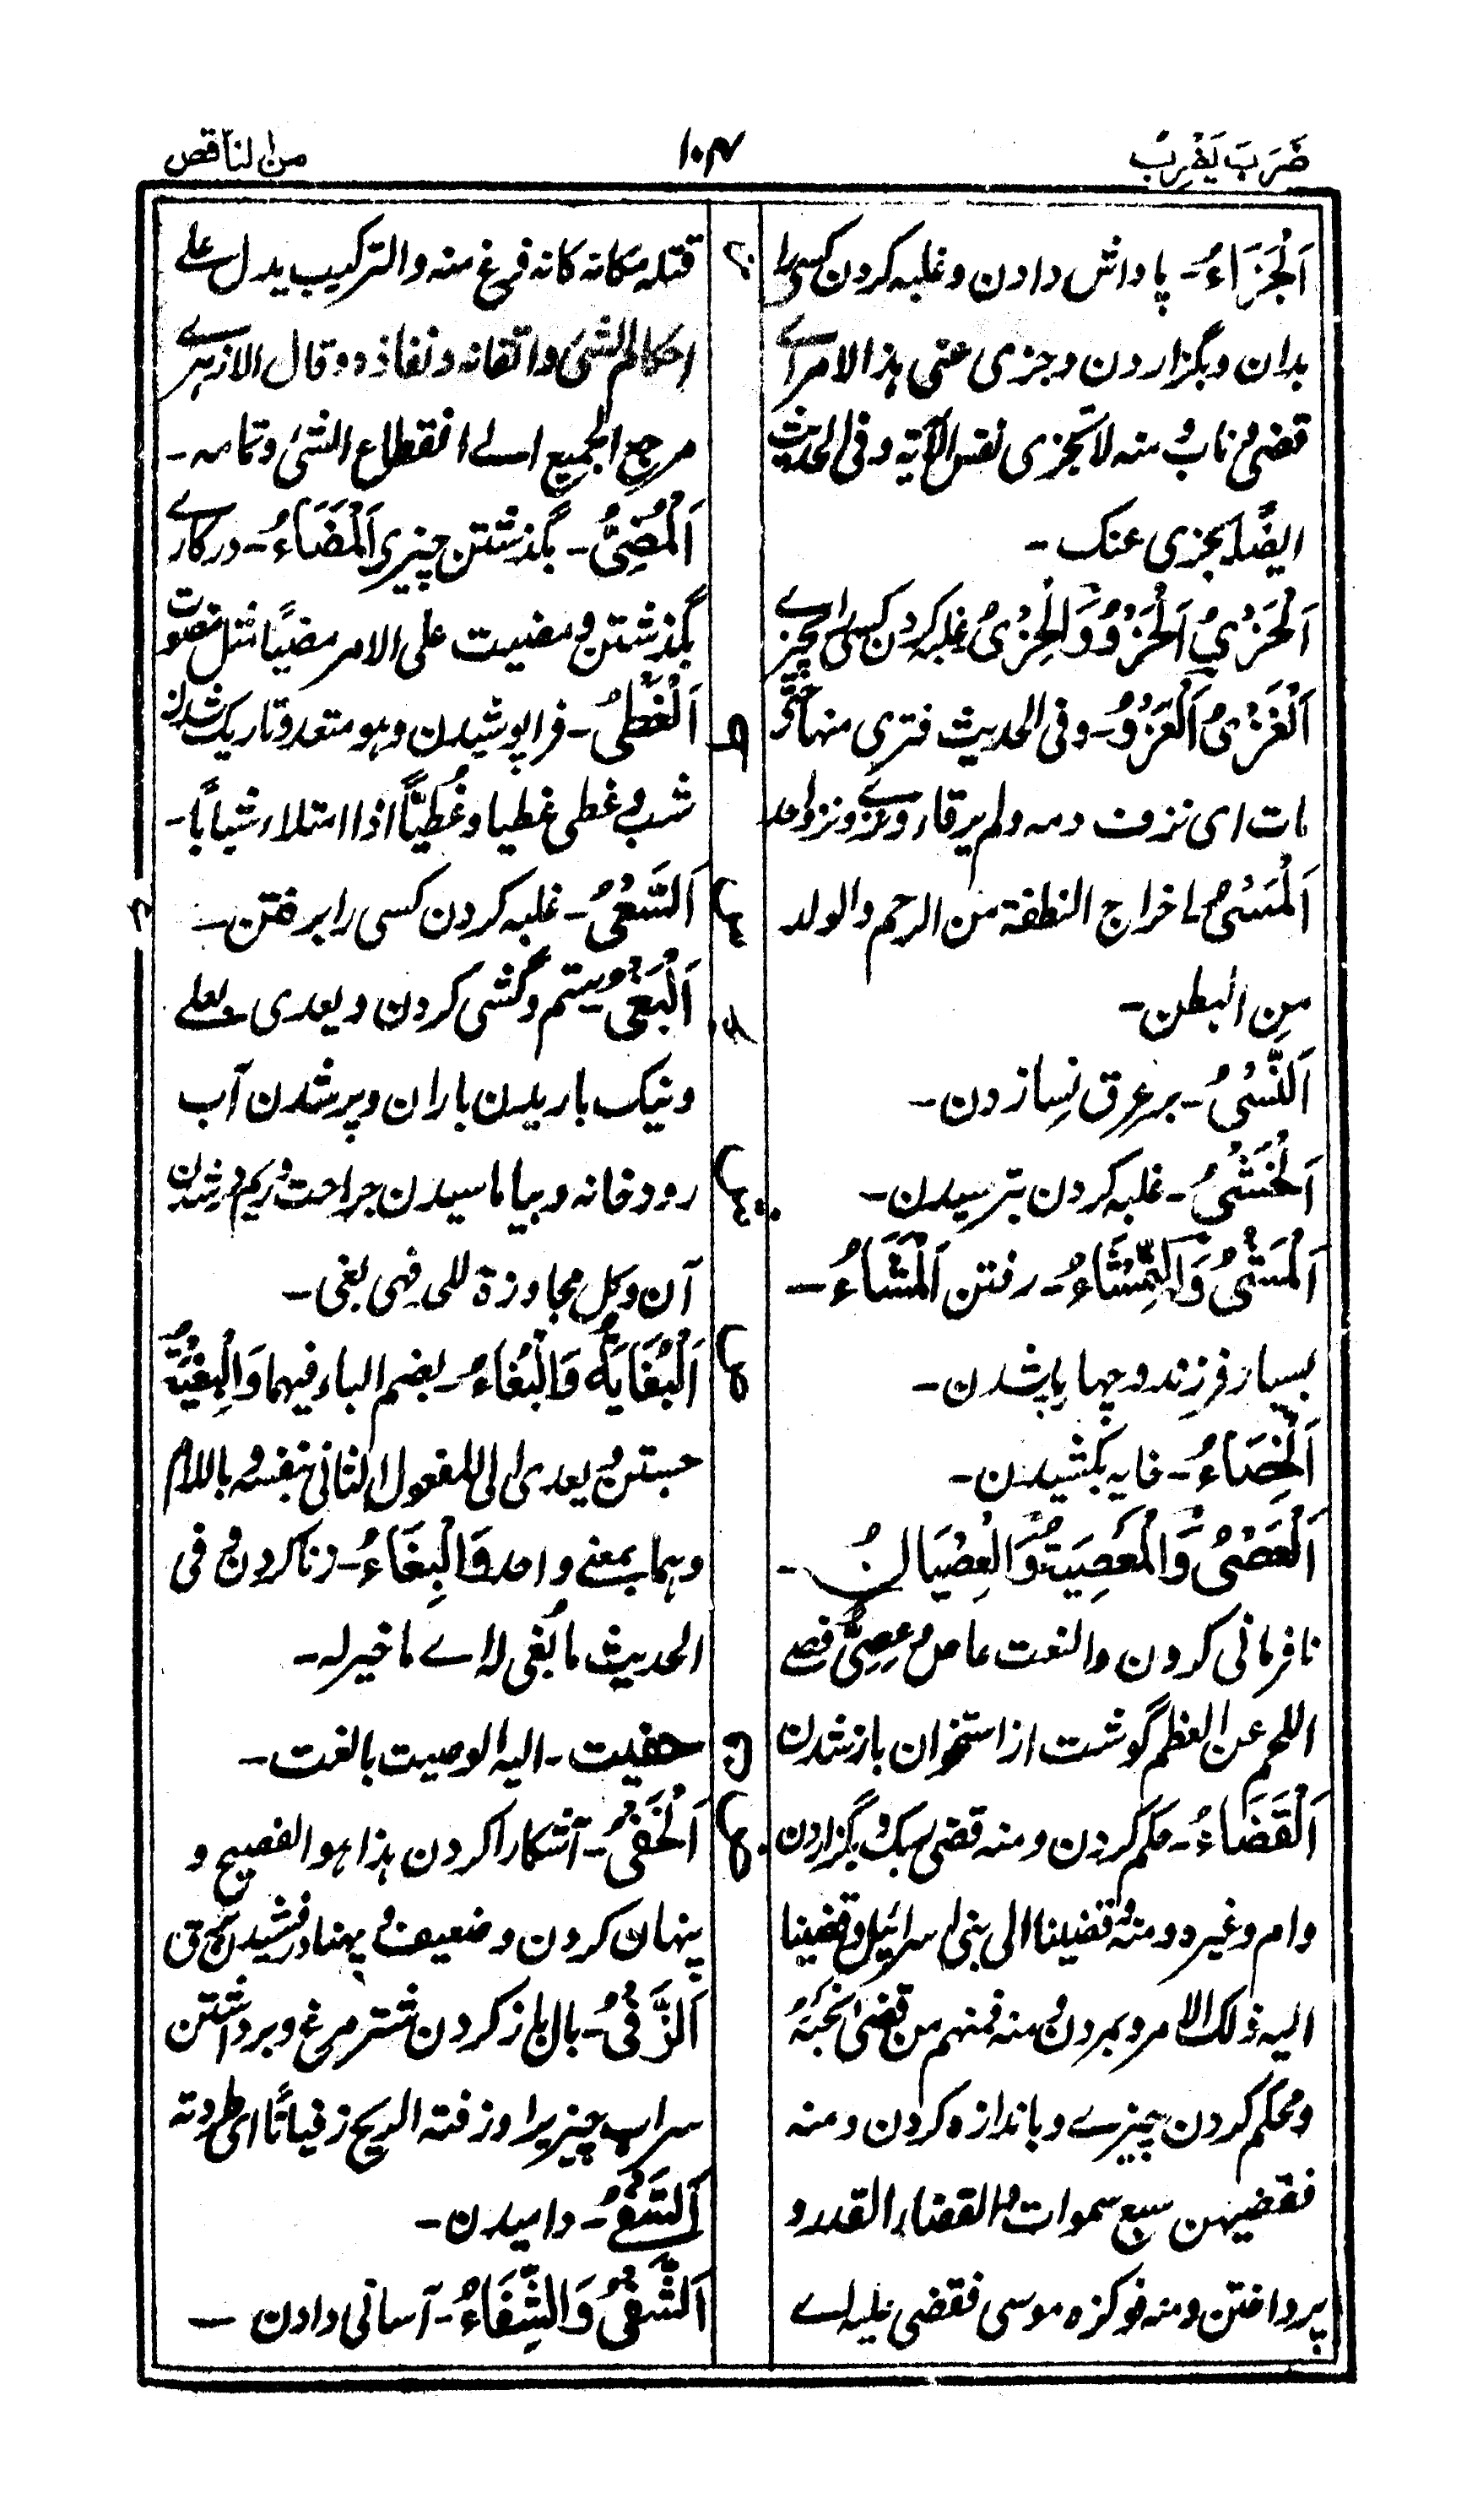 ضَرَبَ يَضْرِبُ
۱۰۴
من الناقص
اَلْجَزَاءُ۔ پاداش دادن و غلبه کردن کسی را
بدان و بگزاردن و جزی عنی ہذا الامر اے
قضی و ناب و منه لا تجزی نفس الآیة و فی الحدیث
ایضًا یجزی عنک۔
اَلْحَزْیُ اَلْحَزْوُ وَالْخِزْیُ غلبه کردن کسی را
اَلْغَزْیُ اَلْغَزْوُ۔ و فی الحدیث فنزی منها حَتّٰی
مات ای نزف دمه و لم یرقاء
اَلْمَسْیُ اخراج النطفة من الرحم والولد
من البطن۔
اَلنَّسْیُ۔ بر عرق نِسا زدن۔
اَلْخَشْیُ۔ غلبه کردن بترسیدن۔
اَلْمَشْیُ وَالتِّمْشَاءُ۔ رفتن اَلْمَشَاءُ۔
بسیار فرزند و چهارپا شدن۔
اَلْخِصَاءُ۔ خایه بکشیدن۔
اَلْعَصْیُ وَالْمَعْصِیَةُ وَالْعِصْیَانُ۔
نافرمانی کردن والنعت عاص و عَصِیٌّ
اللحم عن العظم گوشت از استخوان باز شدن
اَلْقَضَاءُ۔ حکم کردن و منه قضی ربک و بگزاردن
وام و غیره و منه قضینا الی بنی اسرائیل و قضینا
الیه ذلک الامر و بمردن و منه فمنهم من قضیٰ نحبَهٗ
و محکم کردن چیزے و باندازه کردن و منه
فقضیهن سبع سموات و القضاء القدر و
پرداختن و منه فوکزه موسی فقضی علیه اے
قتله مکانه کانه فرغ منه والترکیب یدل علے
احکام الشئ واتقانه و نفاذه و قال الازہرے
مرجع الجمیع الے انقطاع الشئ و تمامه۔
اَلْمُضِیُّ۔ بگذشتن چیزی اَلْمَضَاءُ۔ در کارے
بگذشتن و مضیت علی الامر مضیًا مثل مضوت
اَلْغَطْیُ۔ فراپوشیدن و ہو متعد و تاریک شدن
شب و غطی غطیا و غُطِیًّا اذا امتلاء شبابًا۔
اَلسَّعْیُ۔ غلبه کردن کسی را برفتن۔
اَلْبَغْیُ۔ ستم و کشی کردن و یعدی بعلے
و نیک باریدن باران و پر شدن آب
رودخانه و بیاماسیدن جراحت و ریم در شدن
آن و کل مجاوزة للحد فهی بغی۔
اَلْبُغَایَةُ وَالْبُغَاءُ۔ بضم الباء فیهما وَالْبِغْیَةُ
جستن و یعدی الی المفعول الثانی بنفسه و باللام
و ہما بمعنے واحد وَالْبِغَاءُ۔ زنا کردن و فی
الحدیث ما بُغی له اے ما خیر له۔
حفیت۔ الیه الوصیت بالغت۔
اَلْخَفْیُ۔ آشکارا کردن ہذا ہو الفصیح و
پنهان کردن و ضعیف و پهنا درخشیدن برق
اَلزَّفْیُ۔ بال باز کردن شترمرغ و برداشتن
سراب چیزیرا و زفته الریح زفیانًا ای طردته
اَلسَّفْیُ۔ دامیدن۔
اَلشَّفْیُ وَالشِّفَاءُ۔ آسانی دادن۔